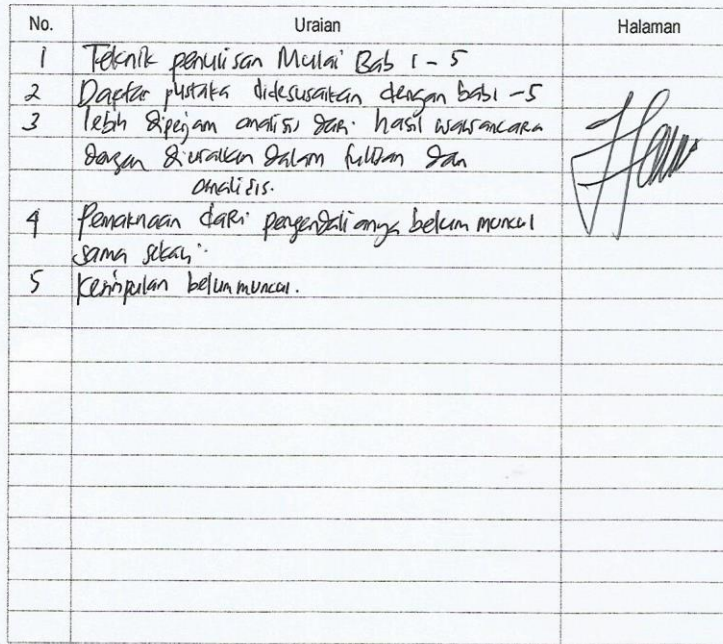 No. Uraian Halaman
1 Teknik penulisan Mulai Bab 1 - 5
2 Daftar pustaka didesusaikan dengan bab 1 - 5
3 lebih dipejam analisis dari hasil wawancara
dengan diuraikan dalam dan
analisis.
4 Pemaknaan dari belum muncul
sama sekali.
5 Kesimpulan belum muncul.